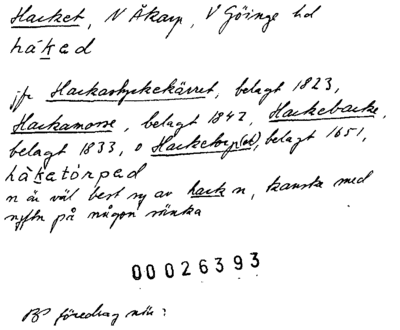 Hacket, N Åkarp, V Göinge hd
håked
jfr Hackastyckekärret, belagt 1823,
Hackamosse, belagt 1842, Hackebacke,
belagt 1833, o Hacketorp(et), belagt 1651,
håkatórped
n är väl best sg av hack n, kanske med
syftn på någon sänka
00026393
föredrag